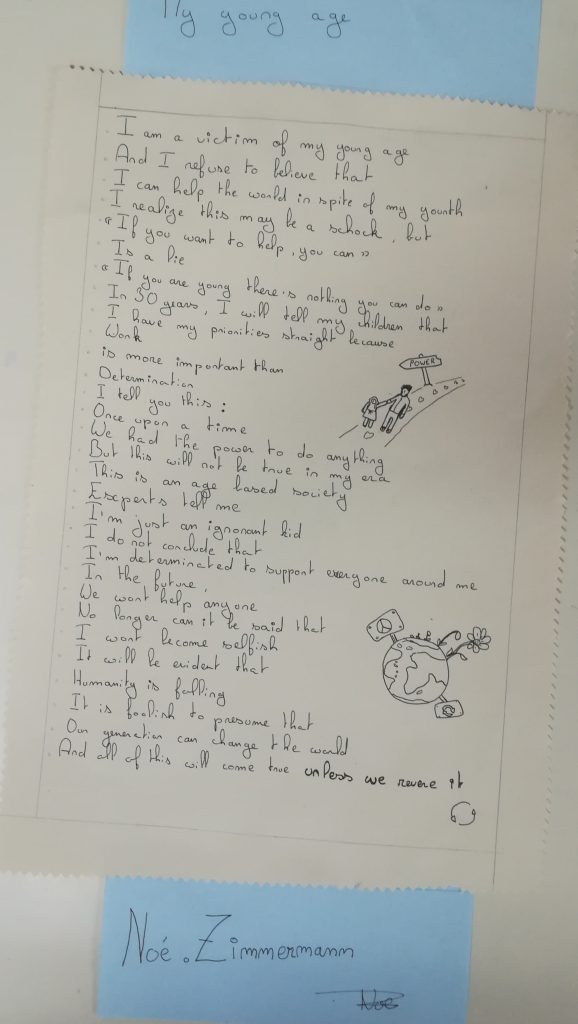 My young age
I am a victim of my young age
And I refuse to believe that
I can help the world in spite of my younth
I realize this may be a schock, but
« If you want to help, you can »
Is a lie
« If you are young there's nothing you can do »
In 30 years, I will tell my children that
I have my priorities straight because
Work
is more important than
Determination
I tell you this :
Once upon a time
We had the power to do anything
But this will not be true in my era
This is an age based society
Experts tell me
I'm just an ignonant kid
I do not conclude that
I'm determinated to support everyone around me
In the future,
We wont help anyone
No longer can it be said that
I wont become selfish
It will be evident that
Humanity is falling
It is foolish to presume that
Our generation can change the world
And all of this will come true unless we revere it
POWER
Noé. Zimmermann
Noé